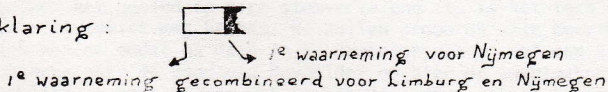 klaring :
1e waarneming voor Nijmegen
1e waarneming gecombineerd voor Limburg en Nijmegen